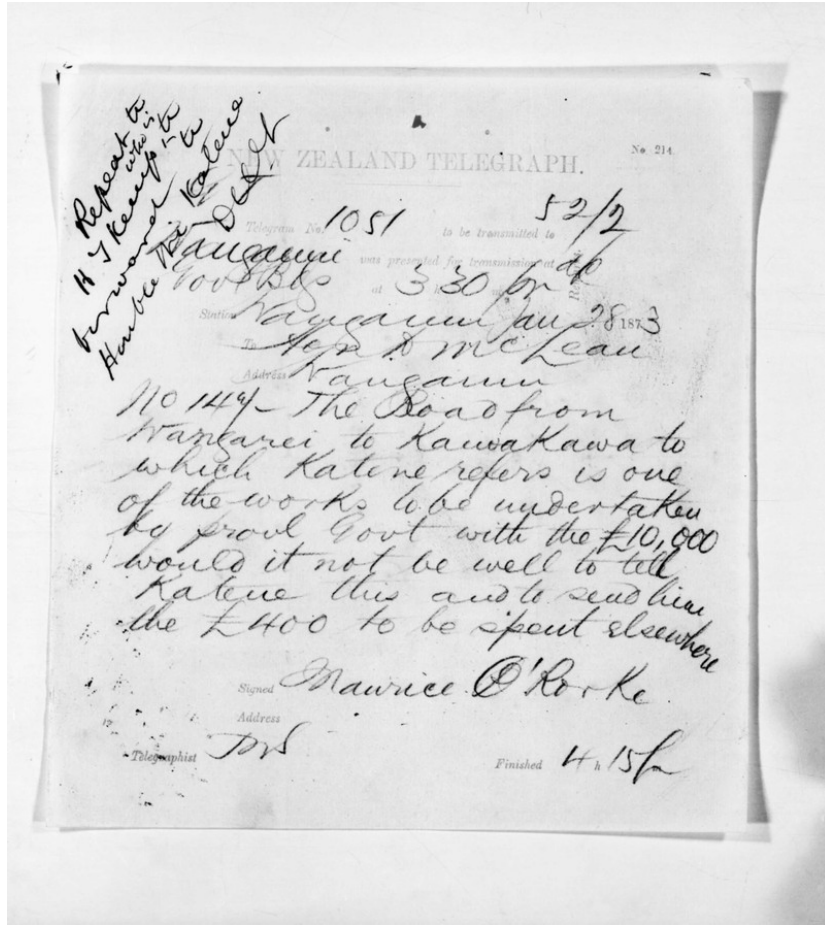 Repeat to
H T Kemp who is
to
forward to
Honble Wi Katene
NEW ZEALAND TELEGRAPH.
No. 214.
52/2
Telegram No. 1051 to be transmitted to
Wanganui was presented for transmission at
Govt Bgs at 3 h 30 pm
Station Wanganui Jan 28 1873
To Hon D McLean
Address Wanganui
No 149/- The Road from
Wangarei to Kawakawa to
which Katene refers is one
of the works to be undertaken
by provl Govt with the £10,000
would it not be well to tell
Katene this and to send him
the £400 to be spent elsewhere
Signed Maurice O'Rorke
Address
Telegraphist
Finished 4 h 15 pm